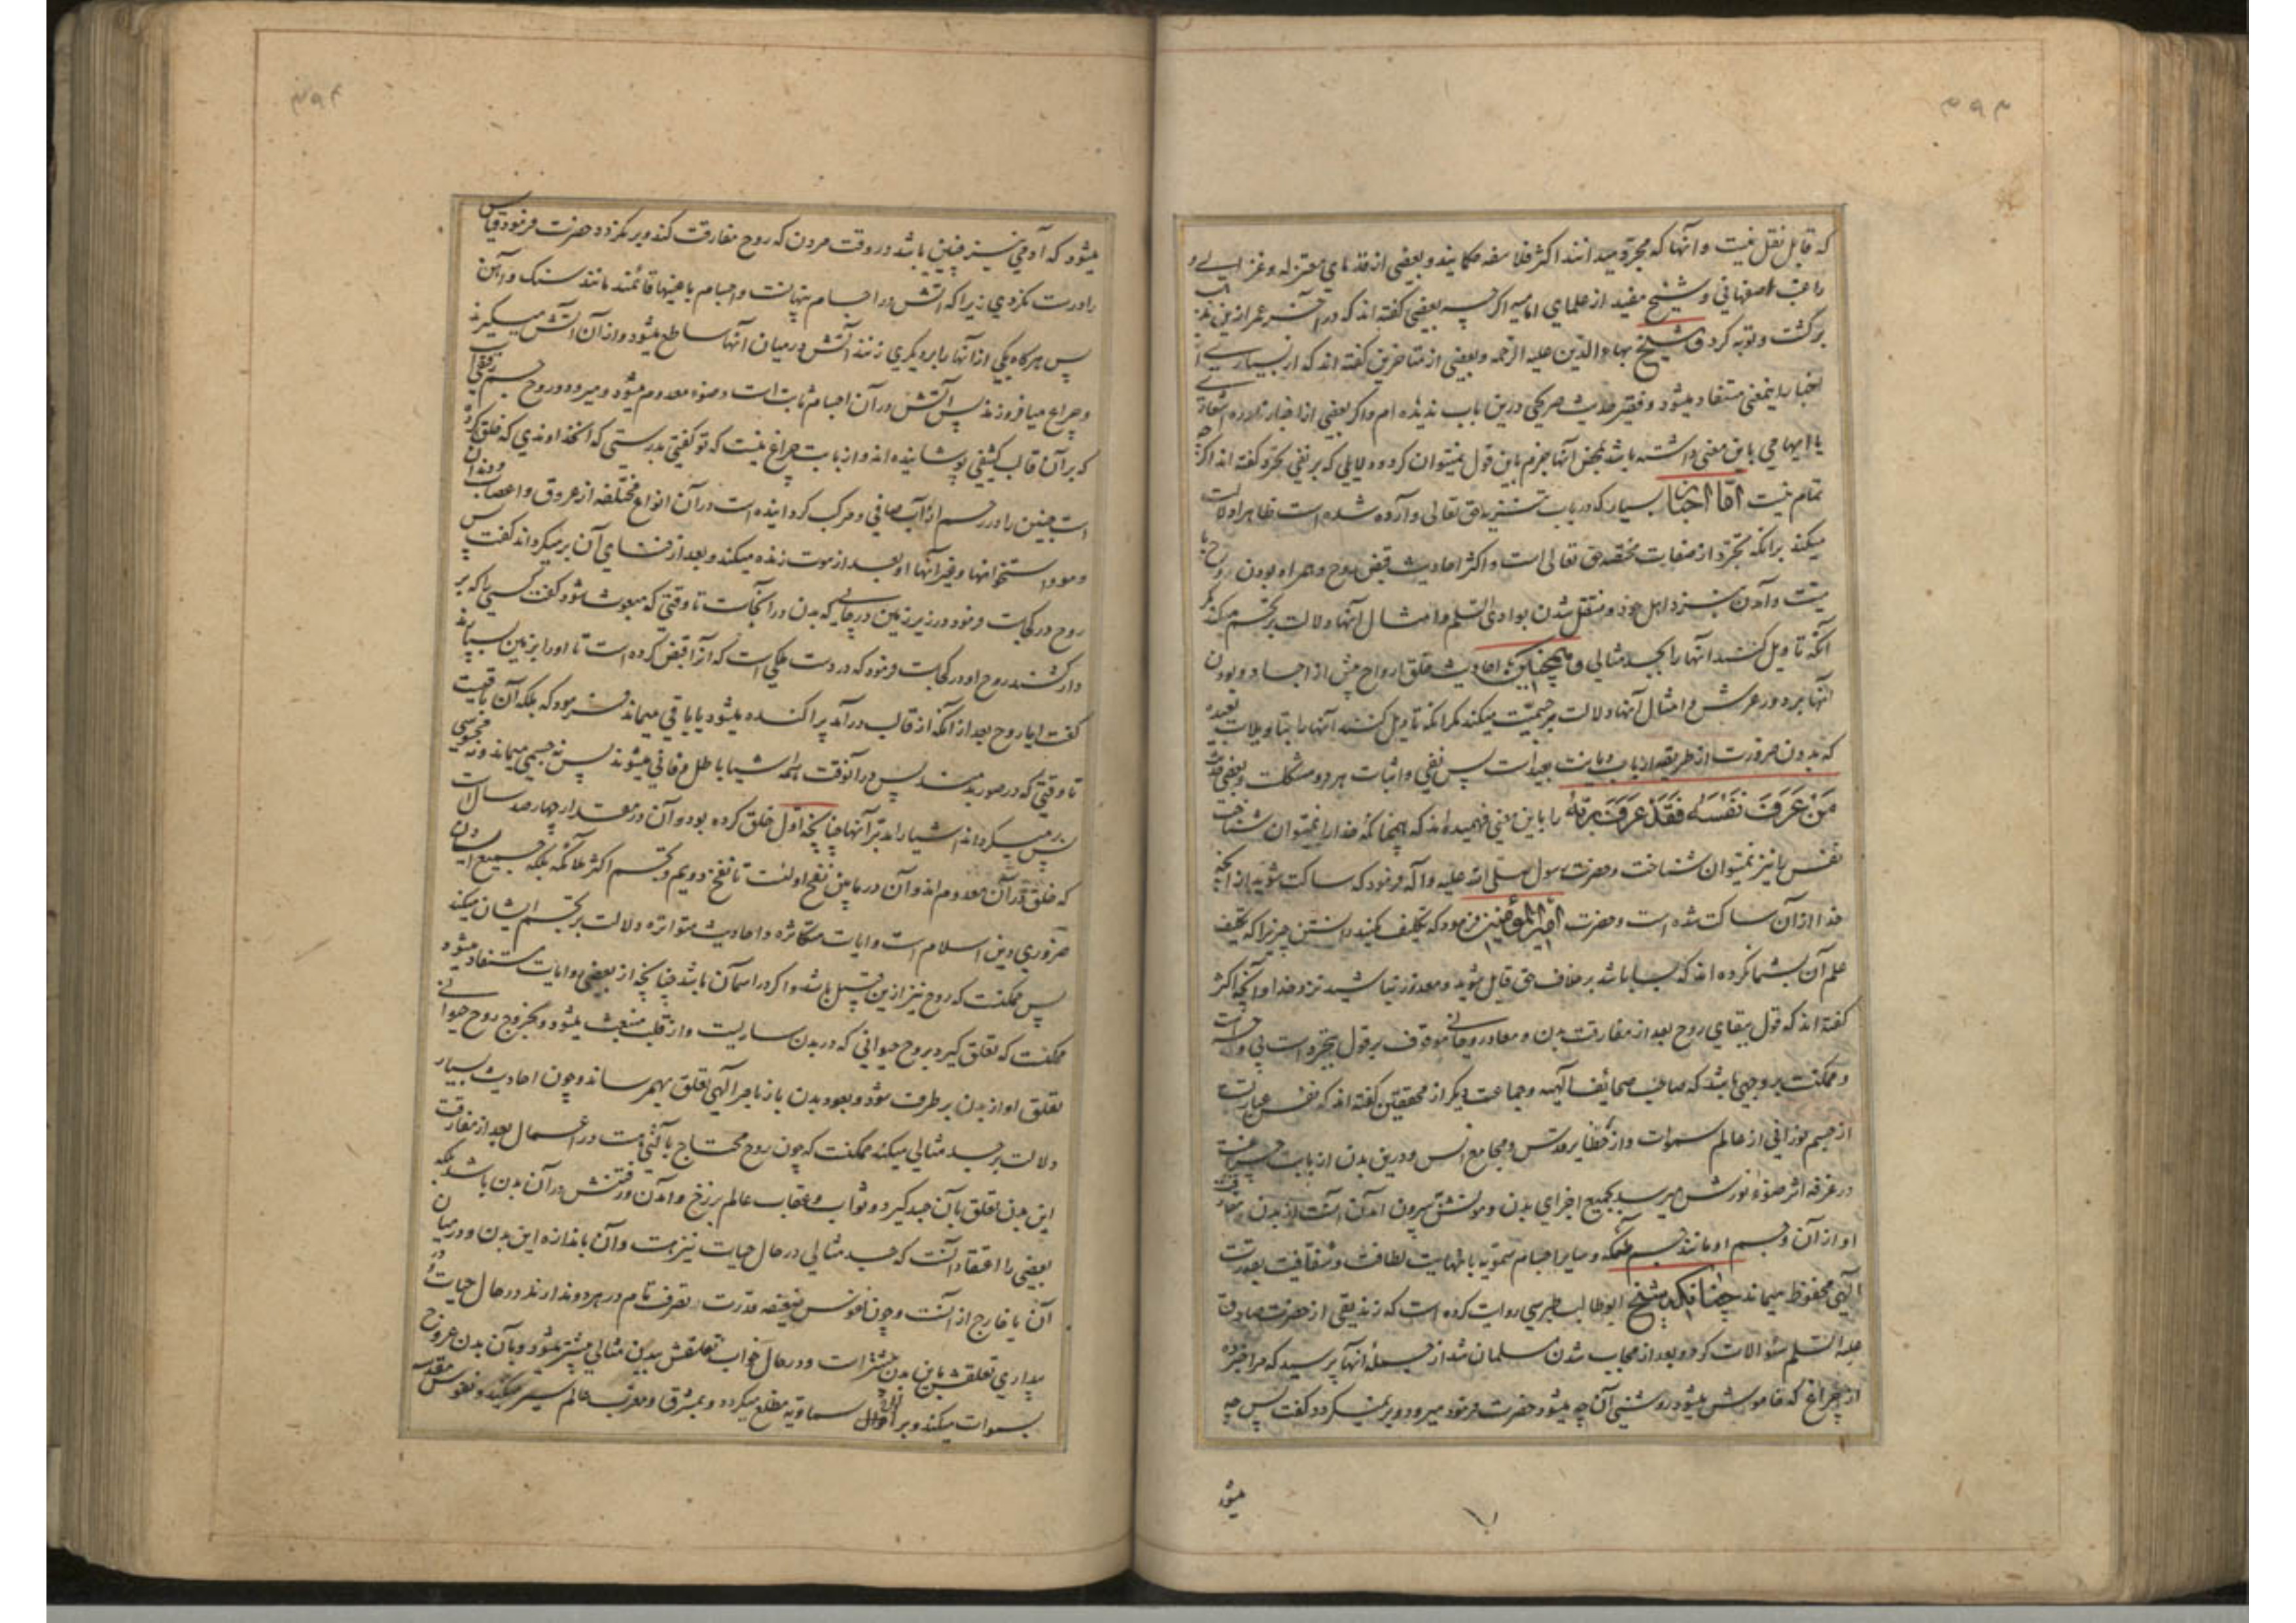 ۳۹۳
که قابل نقل نیست و آنها که مجرد میدانند اکثر فلاسفه حکمایند و بعضی از قدمای معتزله و غزالی و
راغب اصفهانی و شیخ مفید از علمای امامیه اگرچه بعضی گفته اند که در آخر عمر ازین مذهب
برگشت و توبه کرد و شیخ بهاء الدین علیه الرحمه و بعضی از متاخرین گفته اند که از بسیاری از
اخبار اینمعنی مستفاد میشود و فقیر حدیث صریحی درین باب ندیده ام و اگر بعضی از اخبار نادره اشعاری
یا ایهامی باین معنی داشته باشد بمحض آنها جزم باین قول نمیتوان کرد و دلایلی که بر نفی تجرد گفته اند اگرچه
تمام نیست اما اخبار بسیار که در باب تنزیه حق تعالی وارد شده است ظاهرا دلالت
میکند برانکه تجرد از صفات مختصه حق تعالی است و اکثر احادیث قبض روح و همراه بودن روح با
میت و آمدن بنزد اهل خود و منتقل شدن بوادی السلم و امثال آنها دلالت بر تجسم میکند مگر
آنکه تاویل کنند آنها را بجسد مثالی و همچنین احادیث خلق ارواح پیش از اجساد و بودن
آنها بر دور عرش و امثال آنها دلالت بر جسمیت میکند مگر انکه تاویل کنند آنها را بتاویلات بعیده
که بدون ضرورت از طریقه ارباب دیانت بعید است پس نفی و اثبات هر دو مشکلست و بعضی حدیث
مَنْ عَرَفَ نَفْسَهُ فَقَدْ عَرَفَ رَبَّهُ را باین معنی فهمیده اند که همچنانکه خدا را نمیتوان شناخت
نفس را نیز نمیتوان شناخت و حضرت رسول صلی الله علیه و آله فرمود که ساکت شوید از آنچه
خدا از آن ساکت شده است و حضرت امیر المؤمنین فرمود که تکلیف مکنید دانستن چیزیرا که تکلیف
علم آن بشما نکرده اند که بسا باشد بر خلاف حق قایل شوید و معذور نباشید نزد خدا و آنچه اکثر
گفته اند که قول ببقای روح بعد از مفارقت بدن و معاد روحانی موقوف بر قول بتجرد است بی وجه است
و ممکنست بر وجهی باشد که صاحب صحائف الهیه و جماعت دیگر از محققین گفته اند که نفس عبارتست
از جسم نورانی از عالم سموات و از حظایر قدس و مجامع انس و درین بدن از بابت چراغیست
در غرفه اثر ضوء نورش میرسد بجمیع اجزای بدن و موتش بیرون آمدن آنست از بدن و مفارقت
او از آن و جسم او مانند جسم ملئکه و سایر اجسام سمویه با نهایت لطافت و شفافیت بقدرت
الهی محفوظ میماند چنانکه شیخ ابوطالب طبرسی روایت کرده است که زندیقی از حضرت صادق
علیه السلم سئوالات کرد و بعد از مجاب شدن مسلمان شد از جمله آنها پرسید که مرا خبر ده
از چراغ که خاموش میشود روشنی آن چه میشود حضرت فرمود میرود و بر نمیگردد گفت پس چه
میشود
۳۹۴
میشود که آدمی نیز چنین باشد در وقت مردن که روح مفارقت کند و بر نگردد حضرت فرمود قیاس
را درست نکردی زیرا که آتش در اجسام پنهانست و اجسام باعیانها قائمند مانند سنک و آهن
پس هرگاه یکی از آنها را بر دیگری زنند آتش در میان آنها ساطع میشود و از آن آتش میگیرند
و چراغ میافروزند پس آتش در آن اجسام ثابت است و ضوء معدوم میشود و میرود و روح جسم رقیقی است
که بر آن قالب کثیفی پوشانیده اند و از بابت چراغ نیست که تو گفتی بدرستی که آنخداوندی که خلق کرده
است جنین را در رحم از آب صافی و مرکب گردانیده است در آن انواع مختلفه از عروق و اعصاب و دندان
و مو و استخوانها و غیر آنها او بعد از موت زنده میکند و بعد از فنای آن بر میگرداند گفت پس
روح در کجاست فرمود در زیر زمین در جائی که بدن در آنجاست تا وقتی که مبعوث شود گفت کسی را که بر
دار کشند روح او در کجاست فرمود که در دست ملکی است که آنرا قبض کرده است تا او را بزمین سپارند
گفت ایا روح بعد از آنکه از قالب در آمد پراکنده میشود یا باقی میماند فرمود که بلکه آن باقیست
تا وقتی که در صور بدمند پس در آنوقت همه اشیا باطل و فانی میشوند پس نه جسمی میماند و نه محسوسی
پس بر میگرداند اشیا را مدبر آنها چنانچه اول خلق کرده بود و آن در مقدار چهارصد سال است
که خلق در آن معدوم اند و آن در مابین نفخ اولست تا نفخ دویم و تجسم اکثر ملائکه بلکه جمیع ایشان
ضروری دین اسلام است و ایات متکاثره و احادیث متواتره دلالت بر تجسم ایشان میکند
پس ممکنست که روح نیز ازین قبیل باشد و اگر در اسمان باشد چنانچه از بعضی روایات مستفاد میشود
ممکنست که تعلق گیرد بروح حیوانی که در بدن ساریست و از قلب منبعث میشود و بخروج روح حیوانی
تعلق او از بدن بر طرف شود و بعود بدن باز بامر الهی تعلق بهم رساند و چون احادیث بسیار
دلالت بر جسد مثالی میکند ممکنست که چون روح محتاج بآلتی هست در اعمال بعد از مفارقت
این بدن تعلق بآن جسد گیرد و ثواب و عقاب عالم برزخ و آمدن و رفتنش در آن بدن باشد بلکه
بعضی را اعتقاد آنست که جسد مثالی در حال حیات نیز هست و آن باندازه این بدن و در میان
آن یا خارج از آنست و چون نفوس ضعیفه قدرت تصرف تام در هر دو ندارند در حال حیات و در
بیداری تعلقش باین بدن بیشتر است و در حال خواب تعلقش ببدن مثالی بیشتر میشود و بآن بدن عروج
بسموات میکند و بر احوال سماویه مطلع میگردد و بمشرق و مغرب عالم سیر میکند و نفوس مقدسه